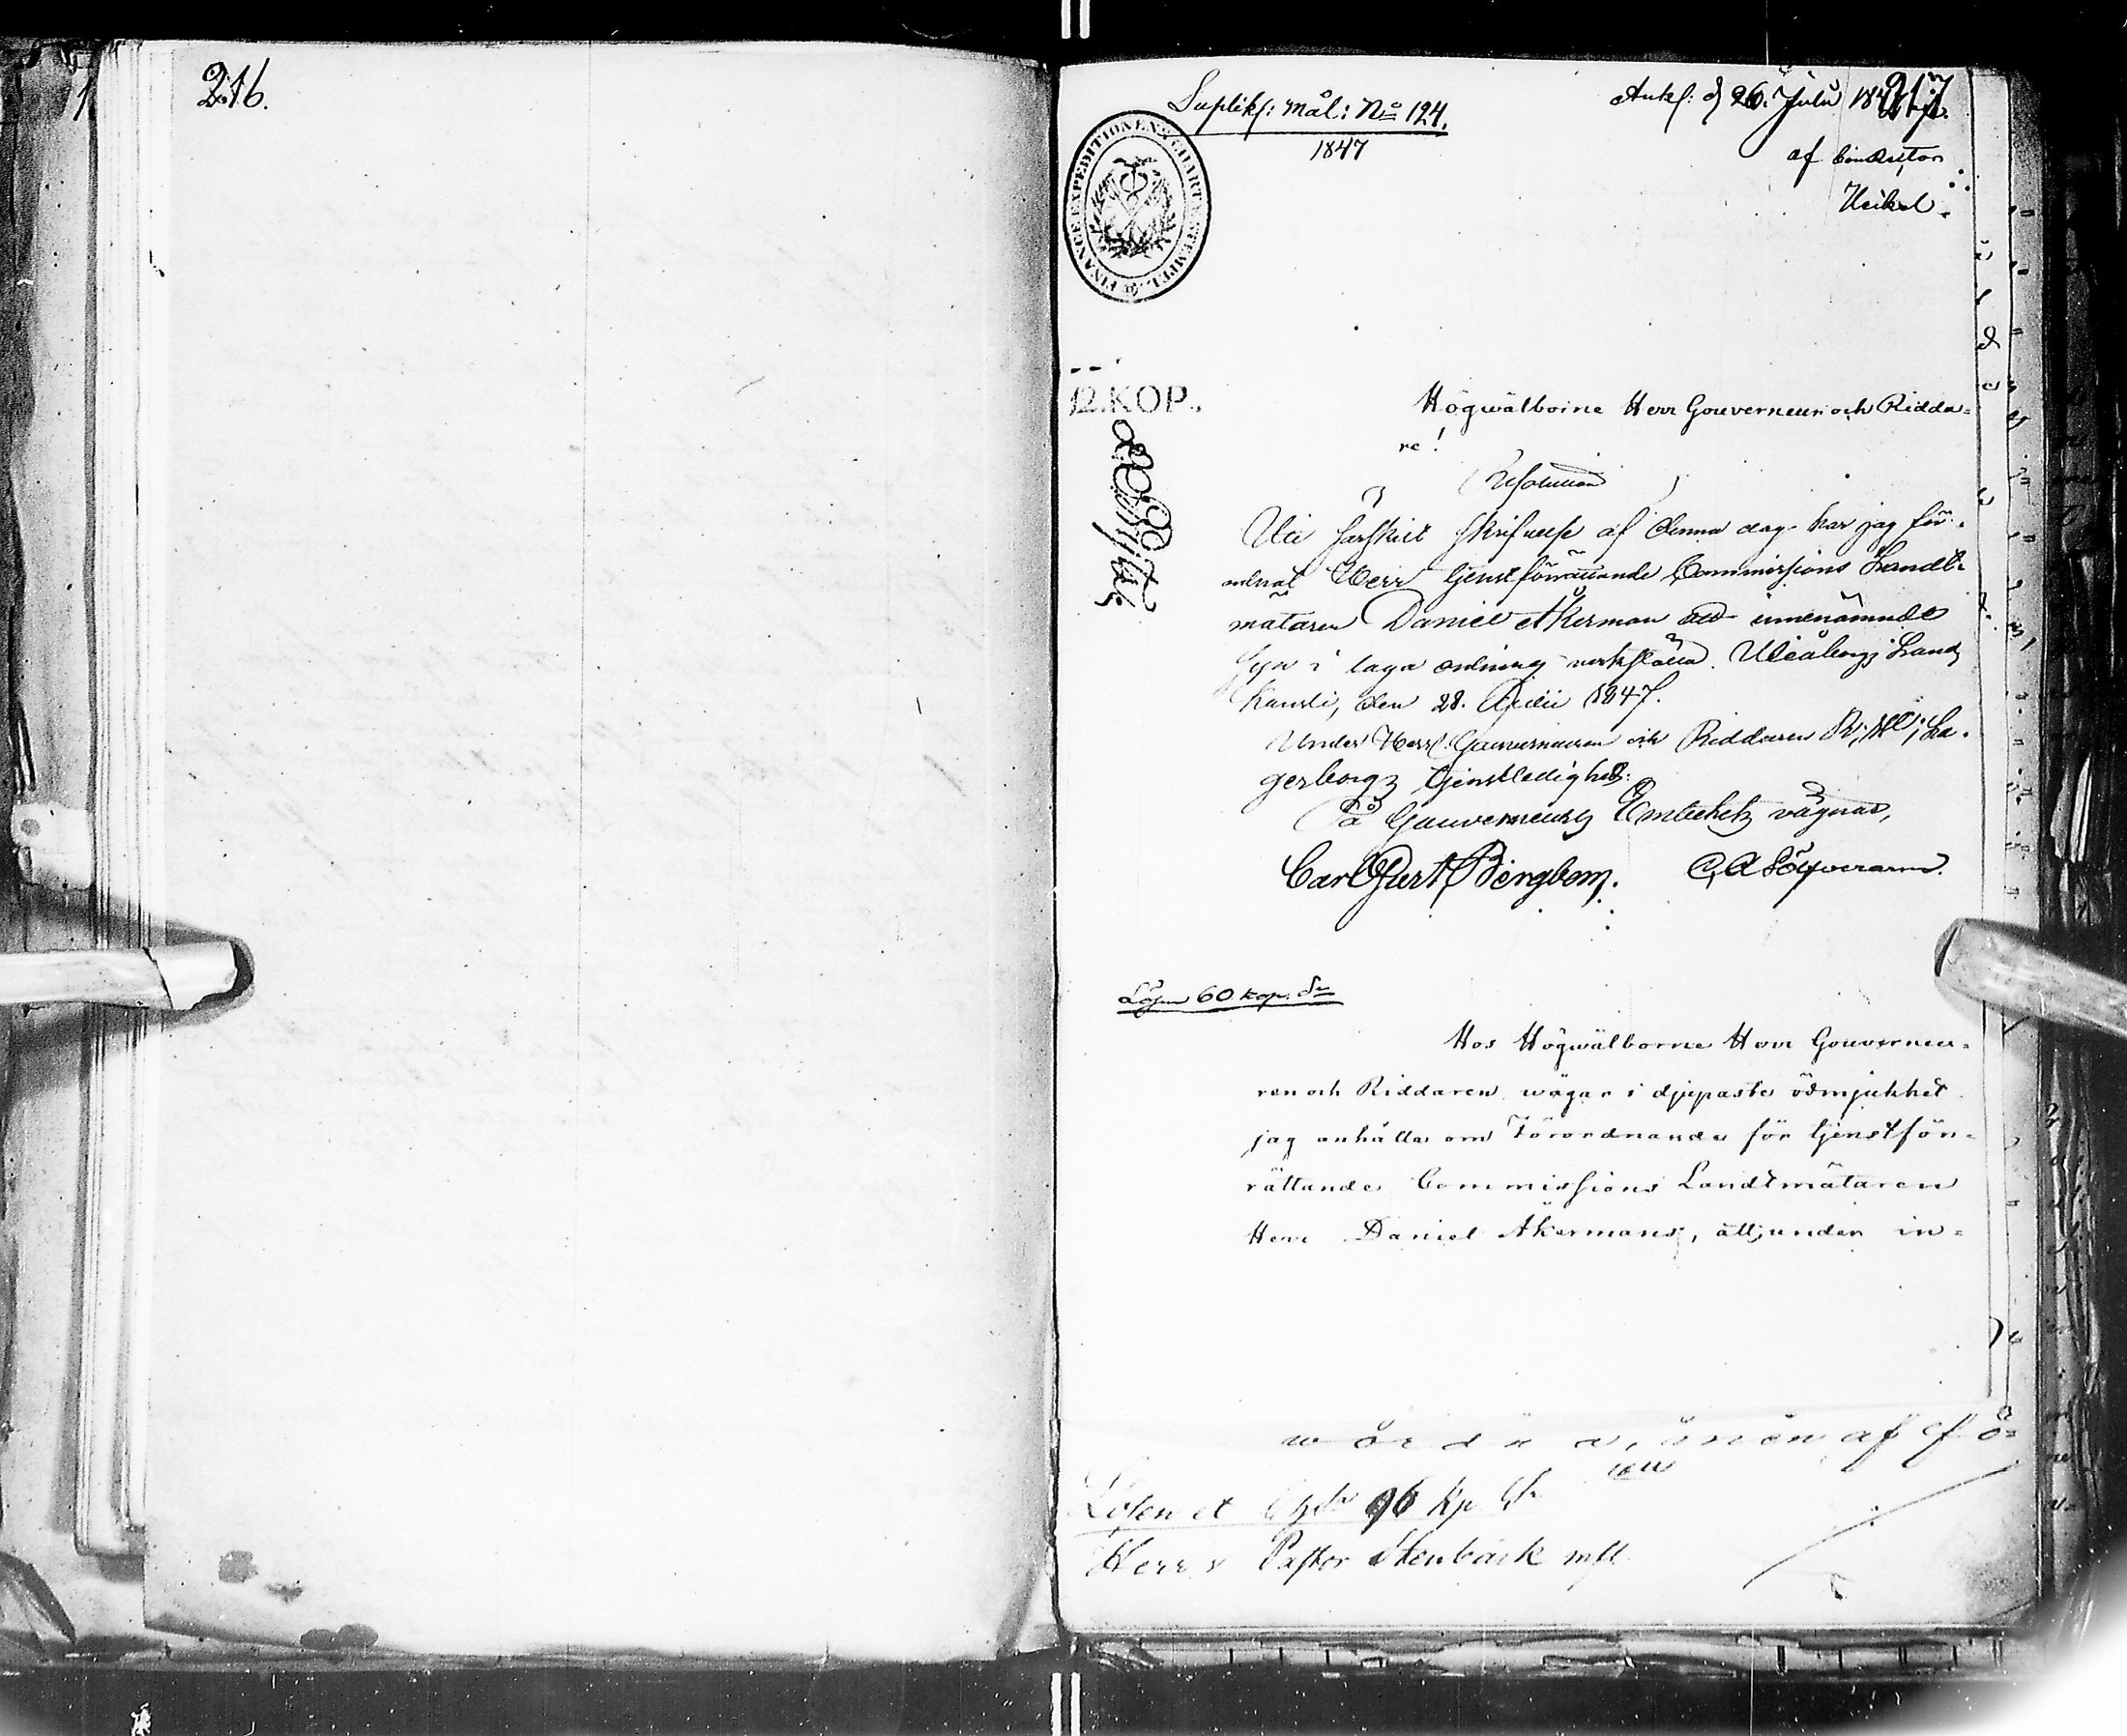 216.
217.
Supliks: mål: No 124.
1847
Ank: d 26. Julii 1847
af
Heikel.
FINANCE EXPEDITIONENS CHARTÆ STEMPEL
12.KOP.
Högwälborne Herr Gouverneur och Ridda=
re!
Resolution
Uti särskilt skrifvelse af denna dag har jag för-
ordnat Herr tjenstförrättande Commissions Landt-
mätaren Daniel Åkerman att innenämnde
syn i laga ordning verkställa. Uleåborgs Lands
Kansli, den 28. Julii 1847.
Under Herr Gouverneuren och Riddaren R: M: La-
gerborgs tjenstledighet:
På Gouverneurs Embetets vägnar,
Carl Gust Bergbom.
Lösen 60 kop. Sr
Hos Högwälborne Herr Gouverneu=
ren och Riddaren wågar i djupaste ödmjukhet
jag anhålla om Förordnande för tjenstför=
rättande Commissions Landtmätaren
Herr Daniel Åkerman, att, under in=
af
Lösen et 96 kp Sr
Herr Pastor Stenbäck